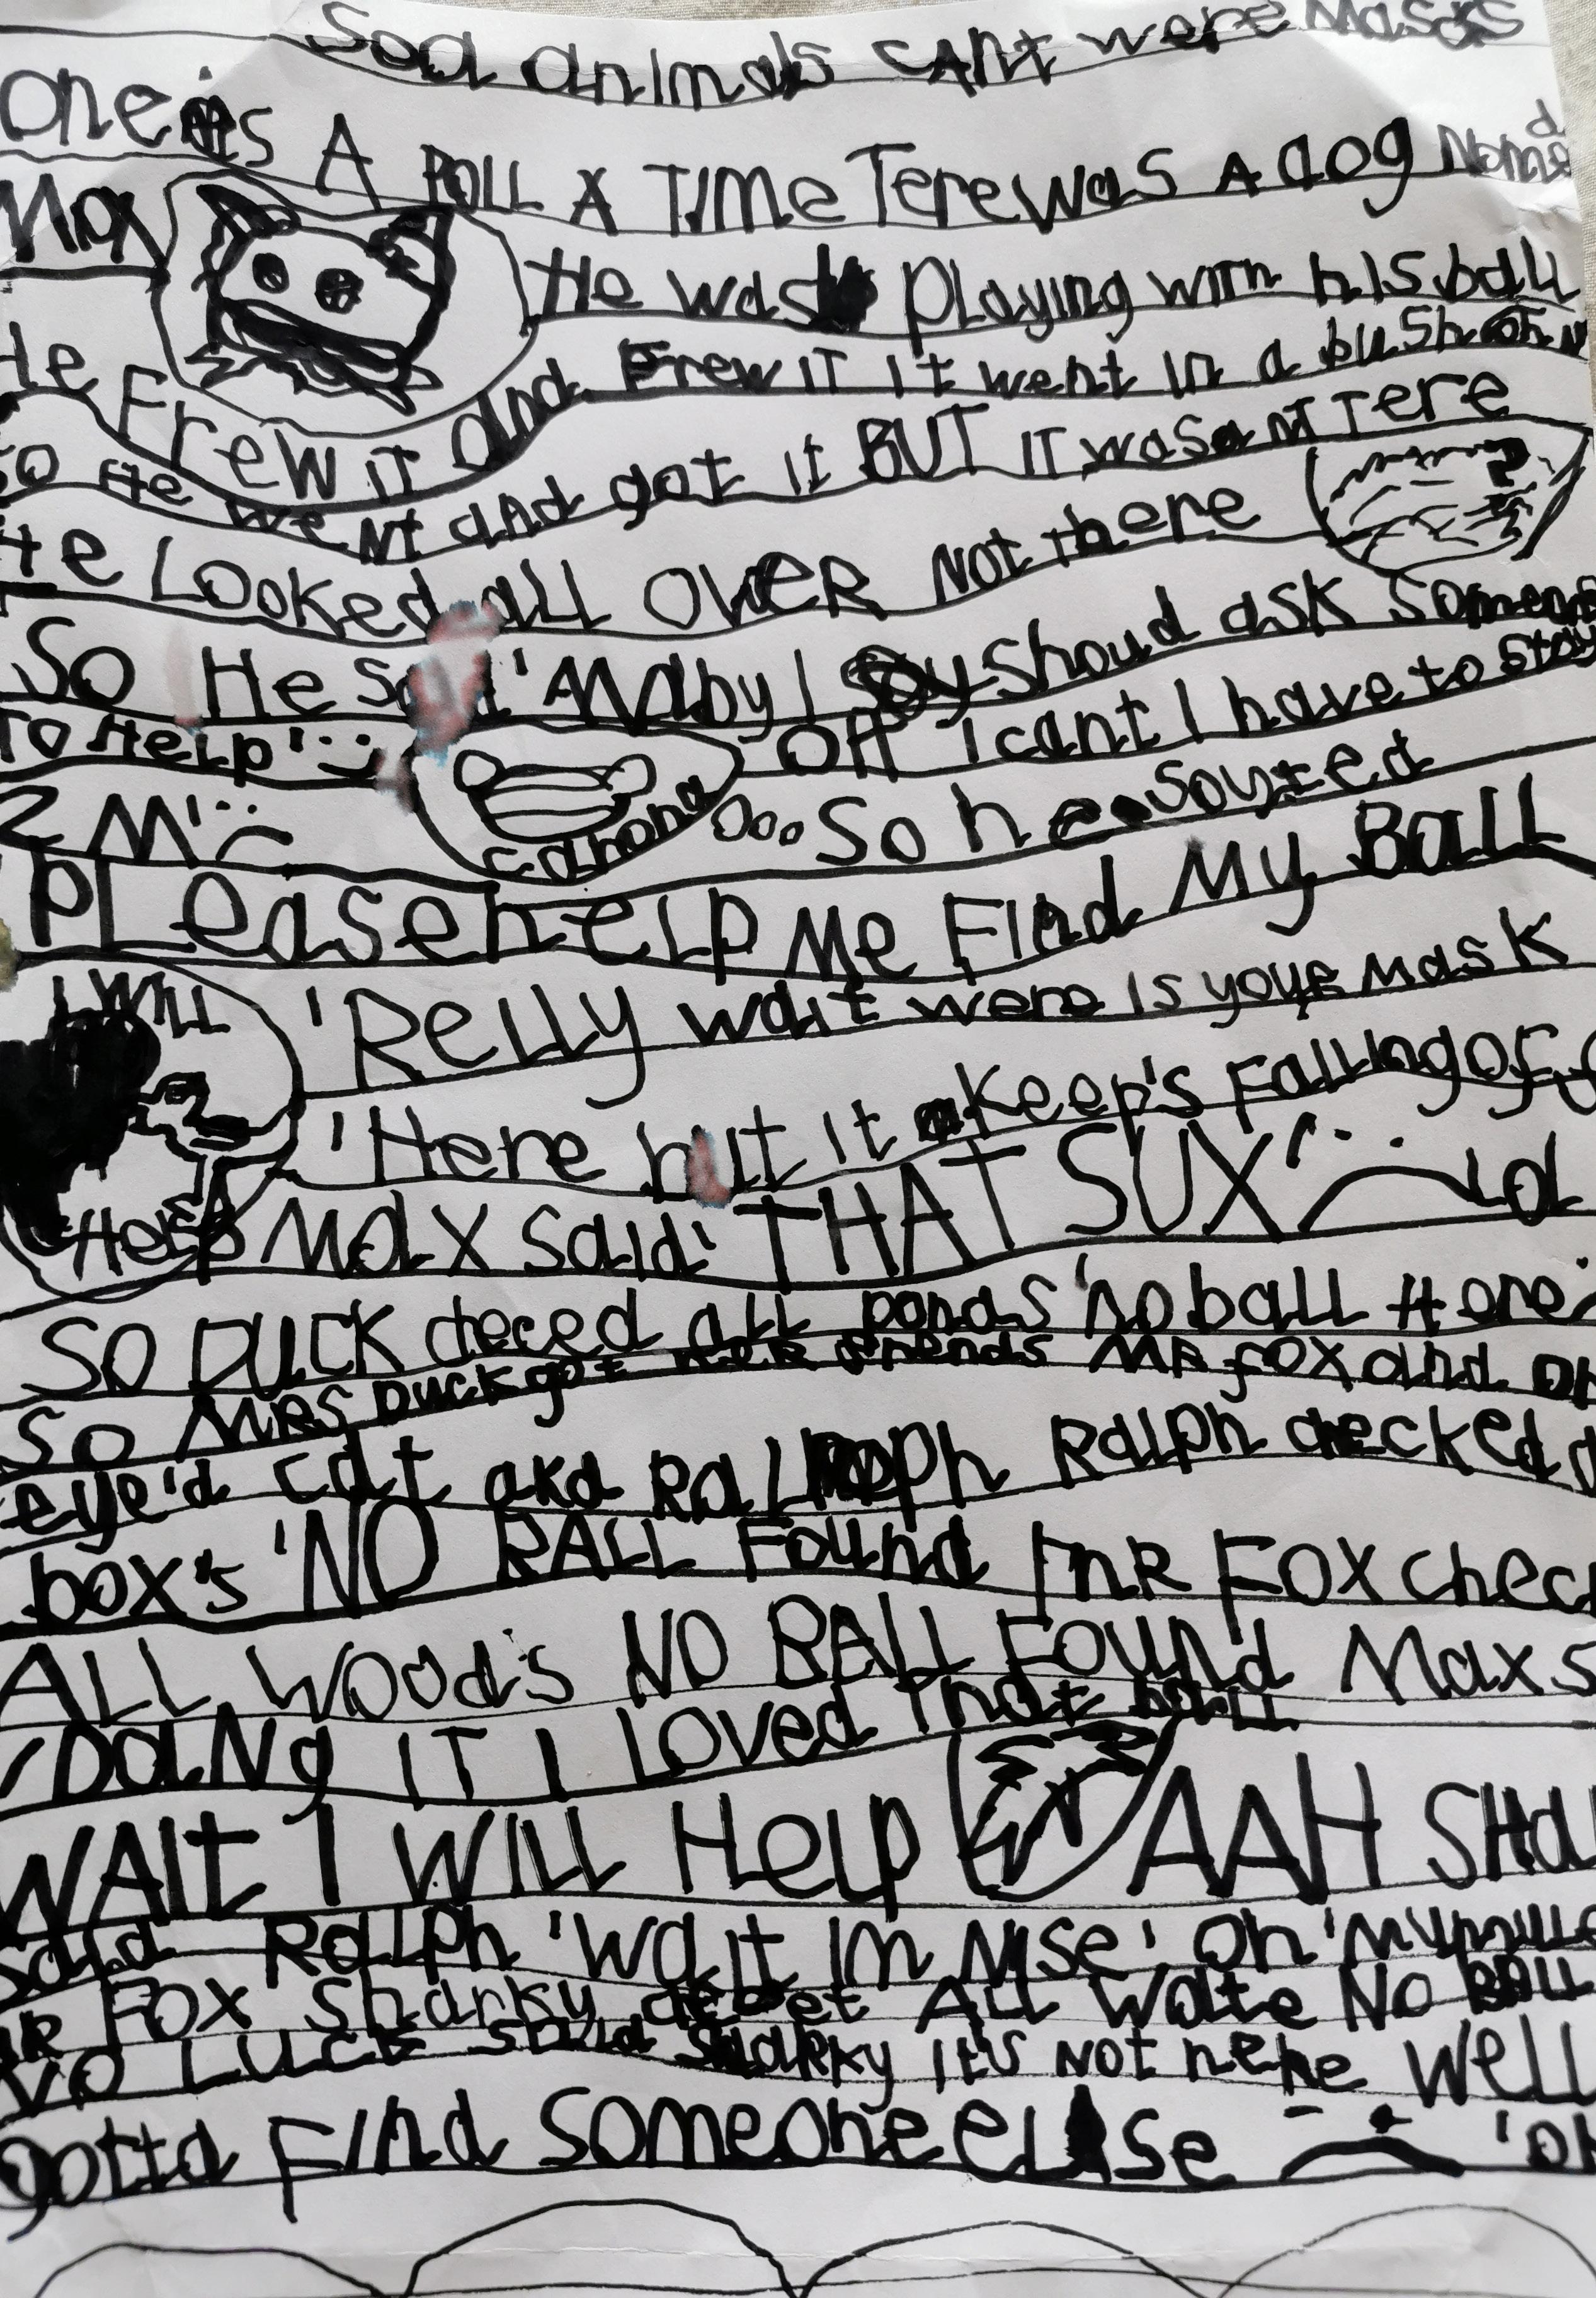 Sea animals cant were Masks
One is A POLL X TIMe Tere was A dog Nomed
Max
He was playing with his ball
He Frew it and Frew IT It went in a bush
So He weNt and got it BUT IT wasant Tere
He Looked all OVeR Not there
So He said 'Maby I Shoud ask
To Help' :)
Oh I cant I have to stay
2 M' :(
carona
...So he soyted
PLease help Me Find My Ball
I WILL
'Relly wait were is youre Mask
'Here but it Keep's Falling off
Help
Max said: 'THAT SUX' :( Lol
So DUCK checed all ponds 'no ball Here'
So MRS Duck got her frends MR fox and
eye'd cat aka Ralph Ralph checked
box's 'NO BALL Found MR FOX chec
ALL Wood's NO BALL Found Max s
IT I Loved That ball
WAIt I WILL Help AAH SHa
said Ralph 'Wait Im NIse' oh 'My
MR FOX Sharky ALL Wate NO BALL
NO LUCK said Sharky It's Not hehe Well
gotta Find Someone eLse :( 'oh